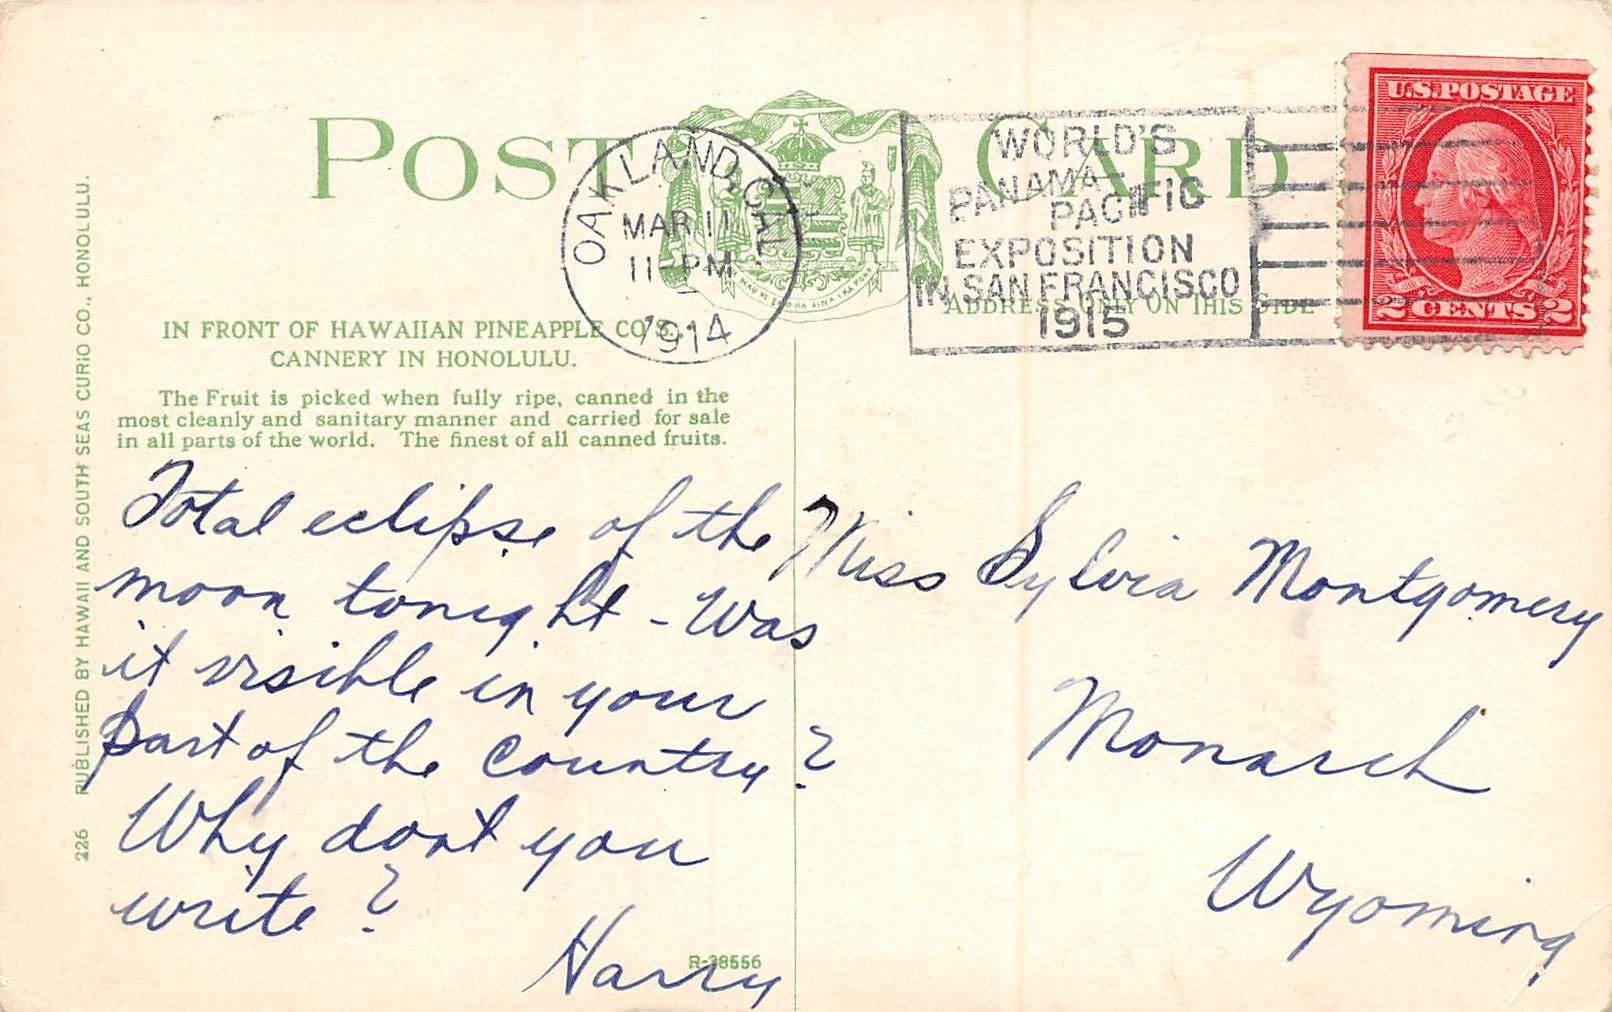 POST CARD
OAKLAND, CAL.
MAR 11
11-PM
1914
WORLD'S
PANAMA-
PACIFIC
EXPOSITION
IN SAN FRANCISCO
1915
U.S. POSTAGE
2 CENTS 2
ADDRESS ONLY ON THIS SIDE
IN FRONT OF HAWAIIAN PINEAPPLE CO'S.
CANNERY IN HONOLULU.
The Fruit is picked when fully ripe, canned in the
most cleanly and sanitary manner and carried for sale
in all parts of the world. The finest of all canned fruits.
Total eclipse of the
moon tonight - Was
it visible in your
part of the country?
Why dont you
write?
Harry
Miss Sylvia Montgomery
Monarch
Wyoming
R-38556
226 PUBLISHED BY HAWAII AND SOUTH SEAS CURIO CO., HONOLULU.